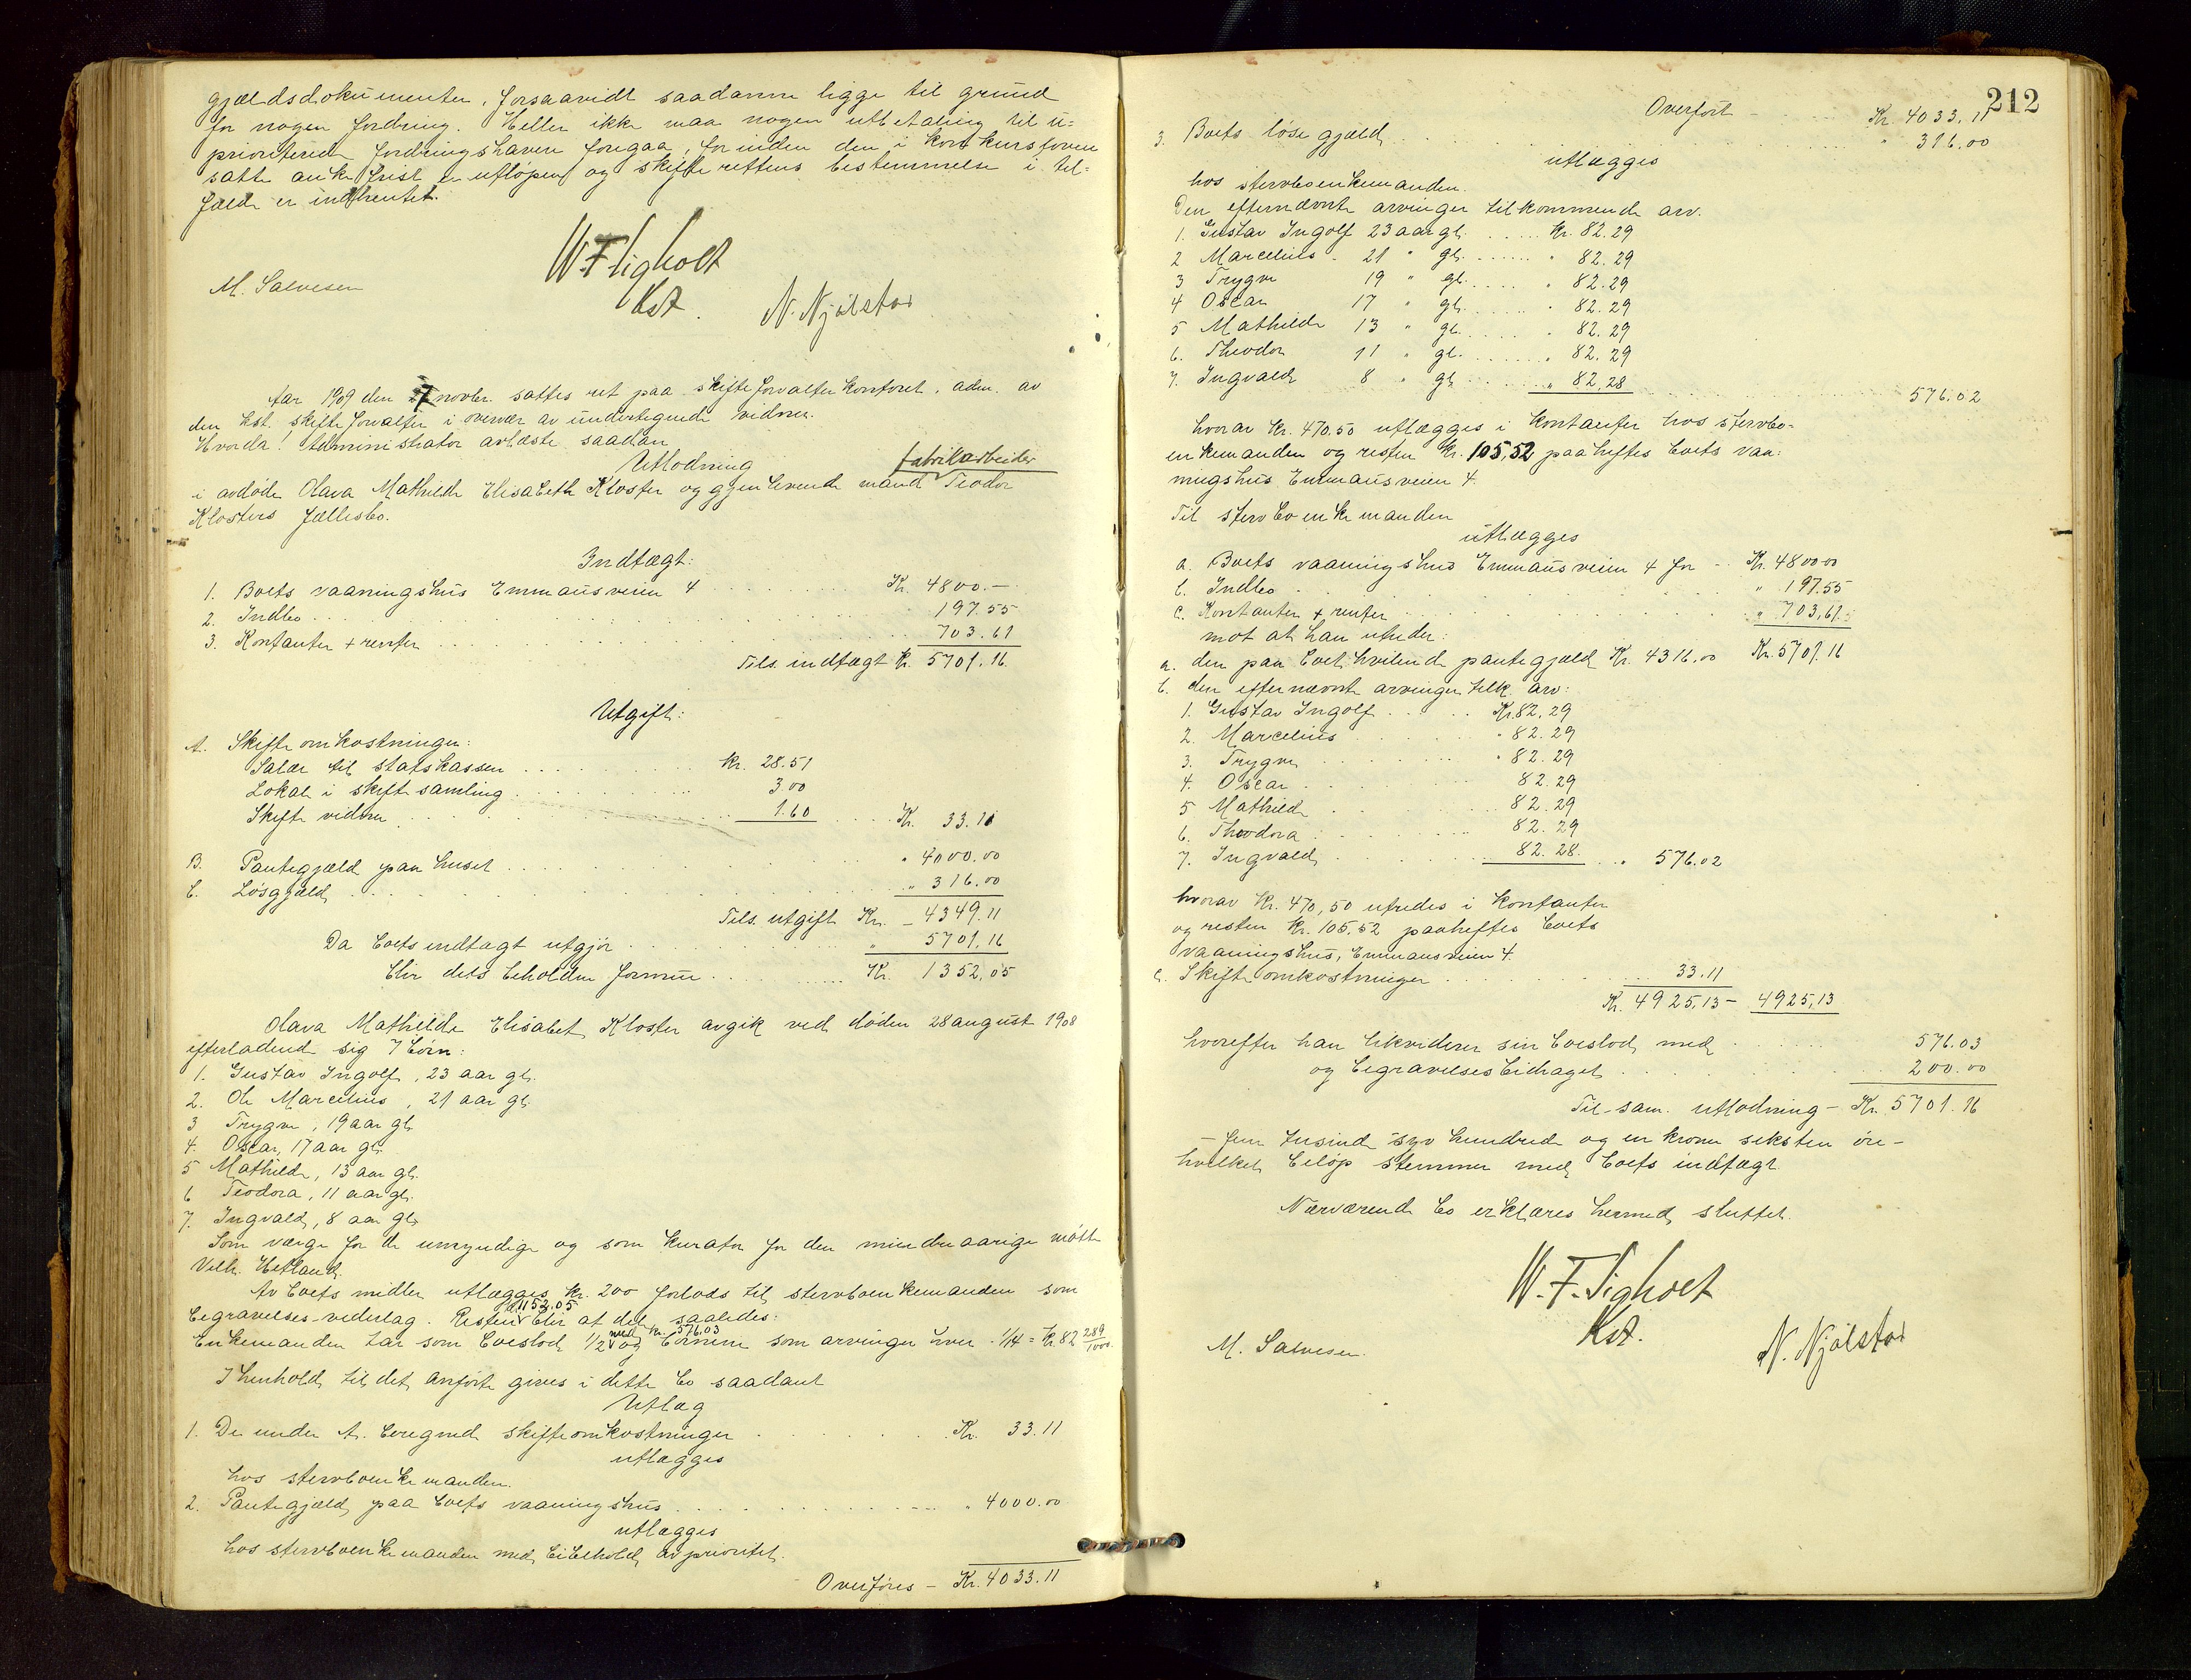 gjældsdokumenter, forsaavidt saadanne ligge til grund
for nogen fordring. Heller ikke maa nogen utbetaling til u=
prioriterede fordringshavere foregaa, forinden den i konkursloven
satte ankefrist er utløpen og skifterettens bestemmelse i til=
fælde er indhentet.
W F Sigholt
Kst.
M. Salvesen
N. Njølstad
Aar 1909 den 27 novbr. sattes ret paa skifteforvalterkontoret, adm. av
den kst. skifteforvalter i overvær av undertegnede vidner.
Hvorda! Administrator avlæste saadan
Utlodning
i avdøde Olava Mathilde Elisabeth Kloster og gjenlevende mand fabrikarbeider Teodor
Klosters fællesbo.
Indtægt:
1. Boets vaaningshus Emmausveien 4 Kr. 4800.-
2. Indbo " 197.55
3. Kontanter + renter 703.61
Tils. indtægt Kr. 5701.16
Utgift:
A. Skifteomkostninger:
Salær til statskassen kr. 28.51
Lokale i skiftesamling 3.00
Skiftevidner 1.60 Kr. 33.11
B. Pantegjæld paa huset " 4000.00
C. Løsgjæld " 316.00
Tils. utgift Kr. - 4349.11
Da boets indtægt utgjør " 5701.16
blir dets beholdne formue Kr. 1352.05
Olava Mathilde Elisabet Kloster avgik ved døden 28 august 1908
efterladende sig 7 børn:
1. Gustav Ingolf, 23 aar gl.
2. Ole Marcelius, 21 aar gl.
3 Trygve, 19 aar gl.
4. Oscar, 17 aar gl.
5 Mathilde, 13 aar gl.
6 Teodora, 11 aar gl.
7. Ingvald, 8 aar gl.
Som værge for de umyndige og som kurator for den mindreaarige møtte
Vilh. Hetland.
Av boets midler utlægges kr. 200 forlods til stervboenkemanden som
begravelses-vederlag. Resten kr. 1152.05 blir at dele saaledes:
Enkemanden tar som boeslod 1/2 med kr. 576.03 og børnene som arvinger hver 1/14 = kr. 82 289/1000
I henhold til det anførte gives i dette bo saadant
Utlæg
1. De under A. beregnede skifteomkostninger Kr. 33.11
utlægges
hos stervboenkemanden.
2. Pantegjæld paa boets vaaningshus " 4000.00
utlægges
hos stervboenkemanden med bibehold av prioritet.
Overføres - Kr. 4033.11
212
Overført - Kr. 4033.11
3. Boets løse gjæld " 316.00
utlægges
hos stervboenkemanden.
Den efternævnte arvinger tilkommende arv.
1. Gustav Ingolf 23 aar gl. Kr. 82.29
2 Marcelius - 21 " gl. " 82.29
3 Trygve 19 " gl. " 82.29
4 Oscar 17 " gl. " 82.29
5 Mathilde 13 " gl. " 82.29
6. Theodor 11 " gl. " 82.29
7. Ingvald 8 " gl. " 82.28 576.02
hvorav kr. 470.50 utlægges i kontanter hos stervbo-
enkemanden og resten kr. 105,52 paaheftes boets vaa=
ningshus Emmausveien 4.
Til stervboenkemanden
utlægges
a. Boets vaaningshus Emmausveien 4 for Kr. 4800.00
b. Indbo " 197.55
c. Kontanter + renter " 703,61
mot at han utreder: Kr. 5701.16
a. den paa boet hvilende pantegjæld Kr. 4316.00
b. den efternævnte arvinger tilk. arv:
1. Gustav Ingolf Kr. 82,29
2. Marcelius " 82.29
3. Trygve " 82.29
4. Oscar 82.29
5 Mathilde 82.29
6. Theodora 82.29
7. Ingvald 82.28 " 576.02
hvorav kr. 470,50 utredes i kontanter
og resten kr. 105.52 paaheftes boets
vaaningshus, Emmausveien 4.
c. Skifteomkostninger 33.11
Kr. 4925,13 - 4925,13
hvorefter han likviderer sin boeslod med 576.03
og begravelsesbidraget 200.00
Til sam. utlodning - Kr. 5701.16
- fem tusinde syv hundrede og en krone seksten øre -
hvilket beløp stemmer med boets indtægt.
Nærværende bo erklæres hermed sluttet.
W. F. Sigholt
Kst.
M. Salvesen.
N. Njølstad